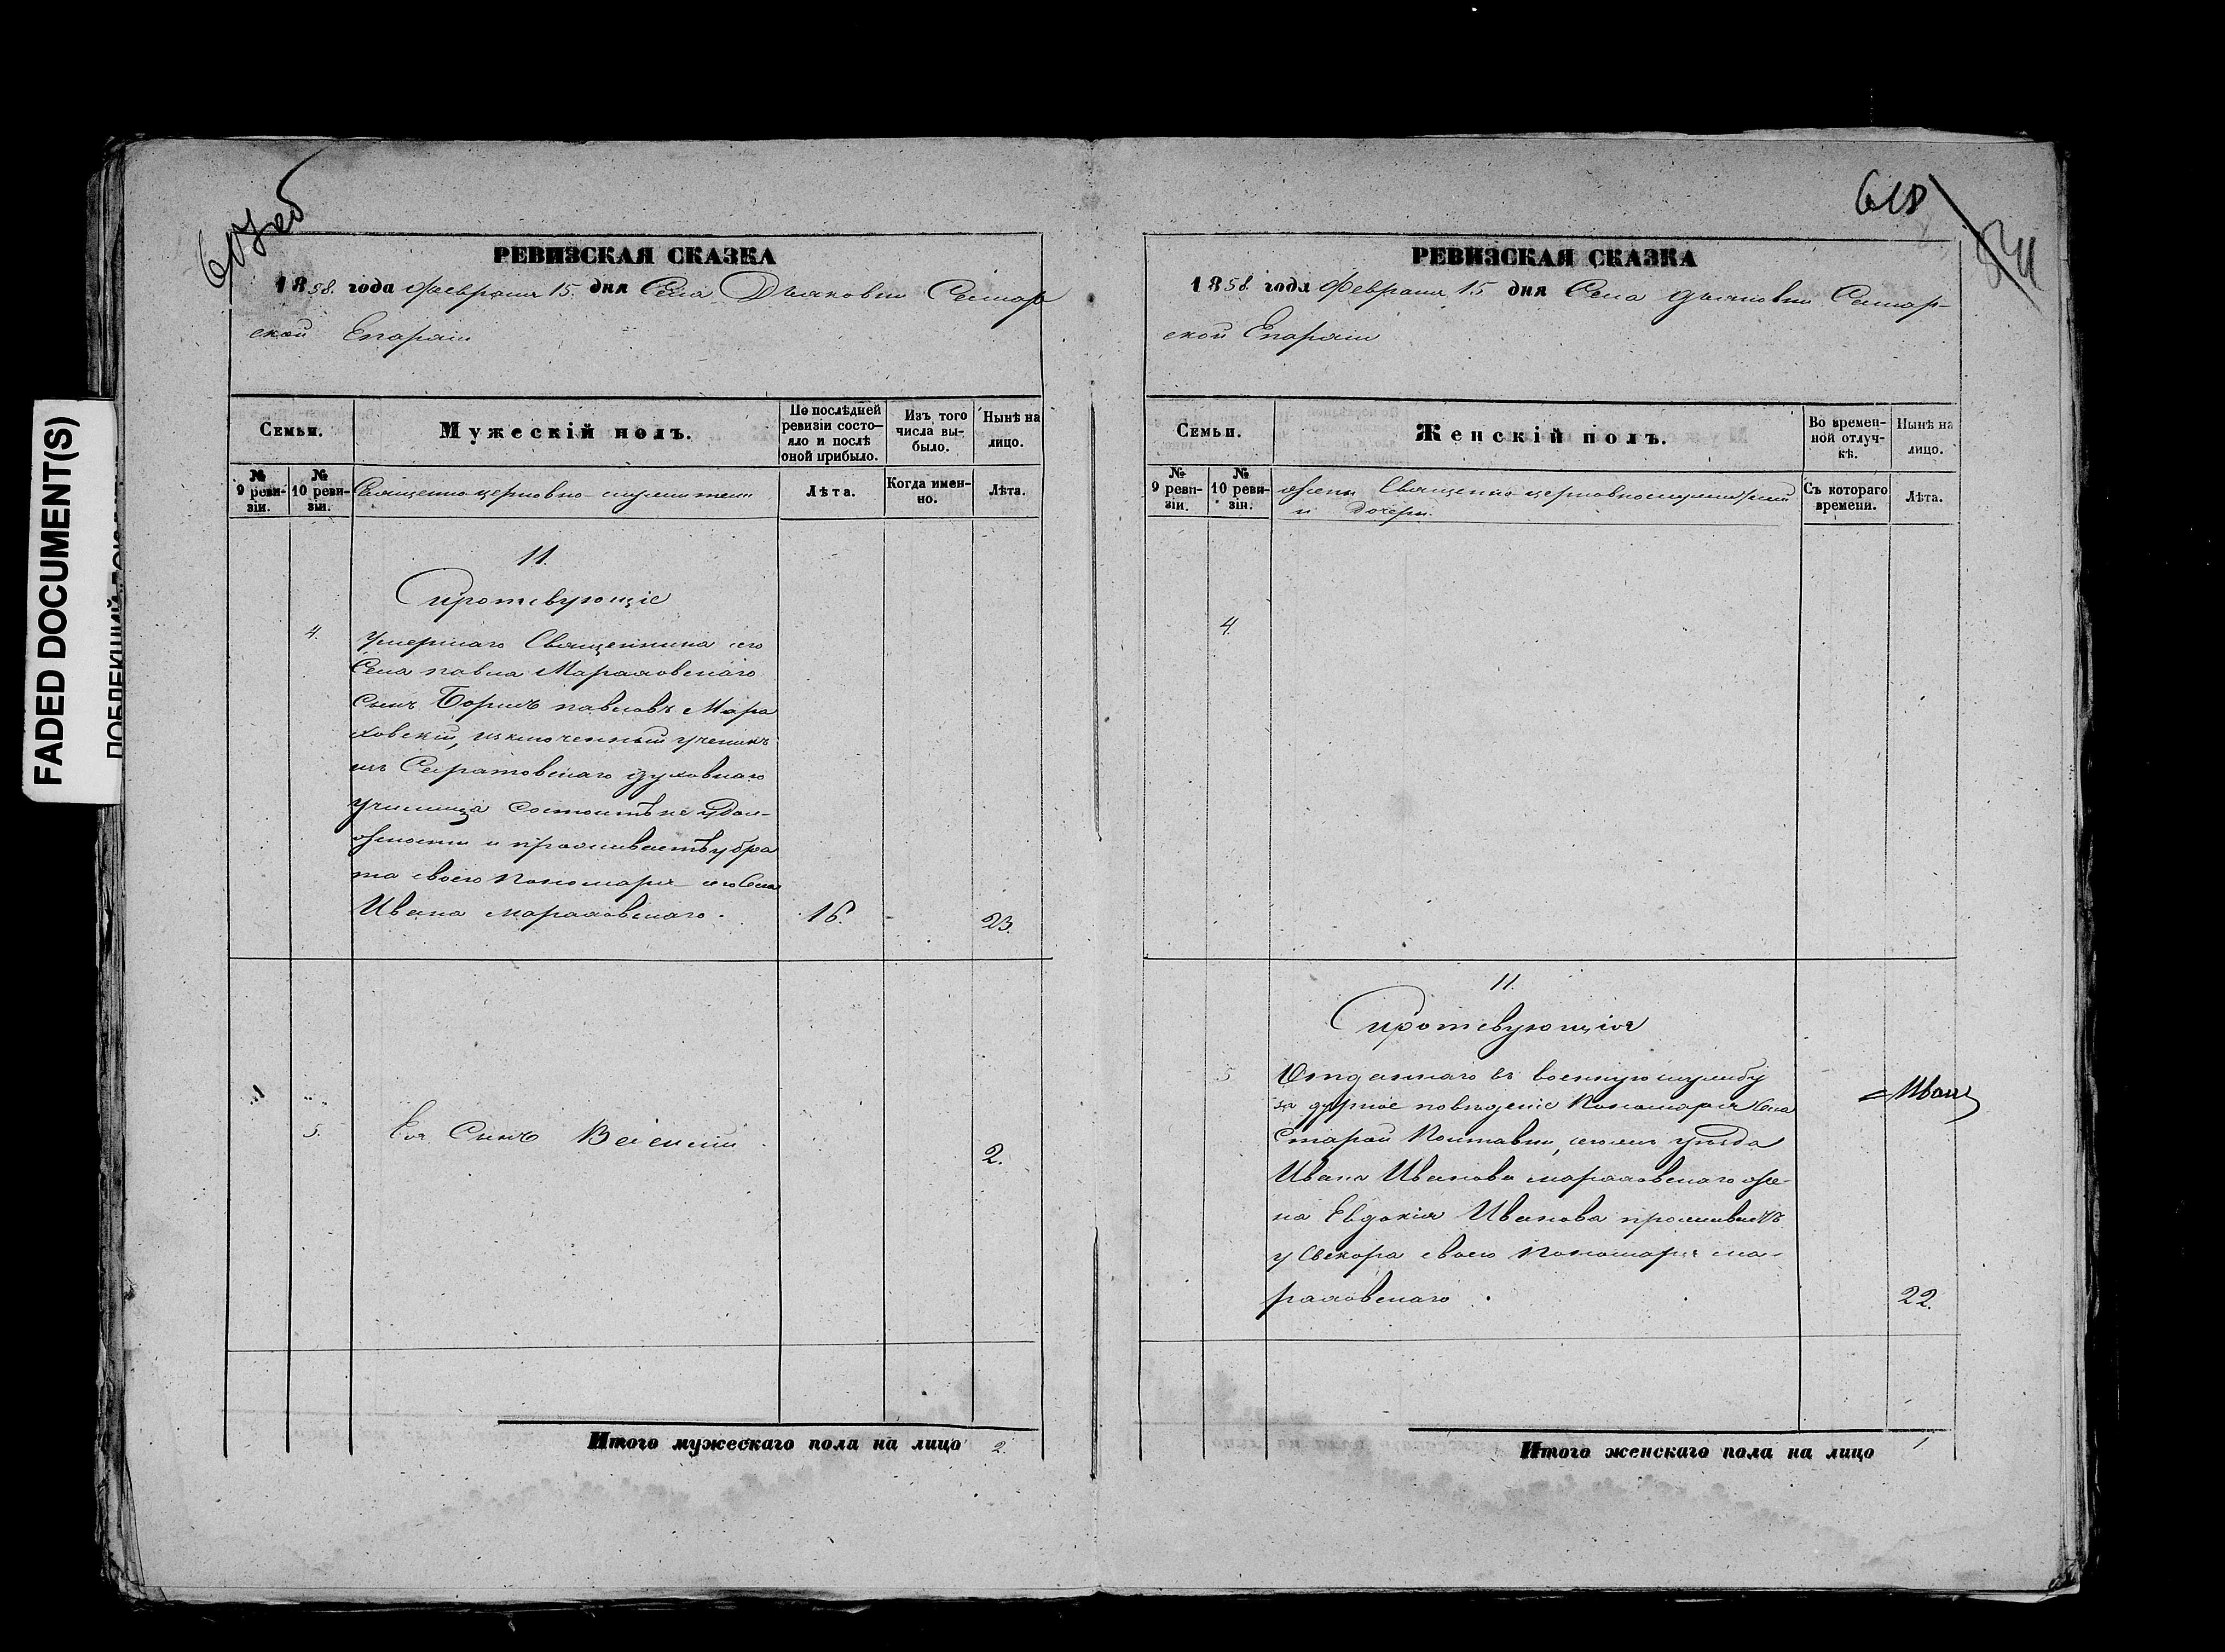 618
РЕВИЗСКАЯ СКАЗКА
1858. года Февраля 15. дня Села Дьяковки Самар
ской Епархіи
Семьи.
Мужескій полъ.
По послѣдней
ревизіи состо-
яло и послѣ
оной прибыло.
Изъ того
числа вы-
было.
Нынѣ на
лицо.
№
9 реви-
зіи.
№
10 реви-
зіи.
Священно-церковно-служители
Лѣта.
Когда имен-
но.
Лѣта.
11.
Сиротствующіе
4.
Умершаго Священника сего
Села павла Мараховскаго
Сынъ Борисъ павловъ Мара
ховскій, исключенный ученикъ
изъ Саратовскаго духовнаго
училища состоитъ не у дол-
жности и проживаетъ у бра
та своего Пономаря сего Села
Ивана мараховскаго.
16.
23.
5.
Ея Сынъ
2.
Итого мужескаго пола на лицо 2.
РЕВИЗСКАЯ СКАЗКА
1858 года Февраля 15 дня Села дьяковки Самар-
ской Епархіи
Семьи.
Женскій полъ.
Во времен-
ной отлуч-
кѣ.
Нынѣ на
лицо.
№
9 реви-
зіи.
№
10 реви-
зіи.
жены Священно-церковнослужителей
и дочери.
Съ котораго
времени.
Лѣта.
4.
11.
Сиротствующія
5
Отданнаго въ военную службу
за дурное поведеніе Пономаря Села
Старой Полтавки, уѣзда
Ивана Иванова мараховскаго же-
на Евдокія Иванова проживаетъ
у Свекора своего Пономаря ма-
раховскаго.
22.
Итого женскаго пола на лицо 1
FADED DOCUMENT(S)